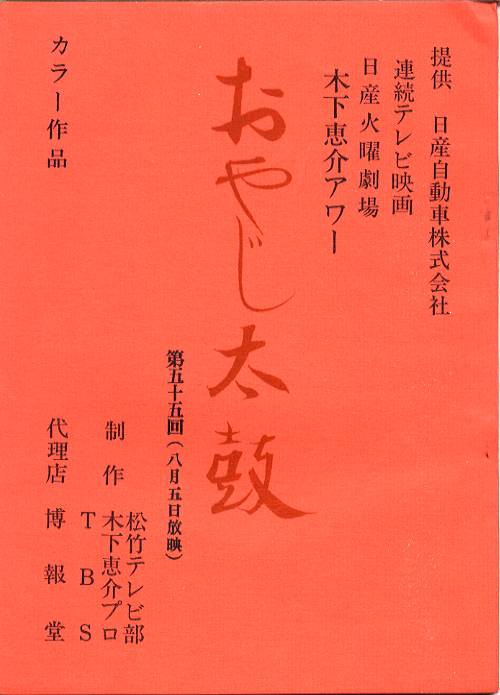 提供　日産自動車株式会社
連続テレビ映画
日産火曜劇場
木下恵介アワー
おやじ太鼓
第五十五回（八月五日放映）
カラー作品
制作　松竹テレビ部
木下恵介プロ
TBS
代理店　博報堂